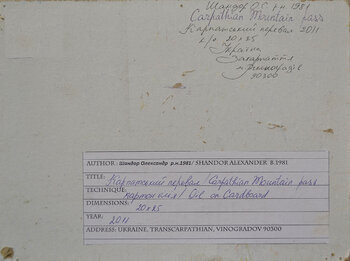 Шандор О.С. р.н. 1981
Carpathian Mountain pass
Карпатский перевал 2011
к/о. 20x25
Україна
Закарпаття
м. Виноградів
90300
AUTHOR: Шандор Олександр р.н.1981/ SHANDOR ALEXANDER B.1981
TITLE: Карпатский перевал/ Carpathian Mountain pass
TECHNIQUE: картон масл/ Oil on Cardboard
DIMENSIONS: 20x25
YEAR: 2011
ADDRESS: UKRAINE, TRANSCARPATHIAN, VINOGRADOV 90300